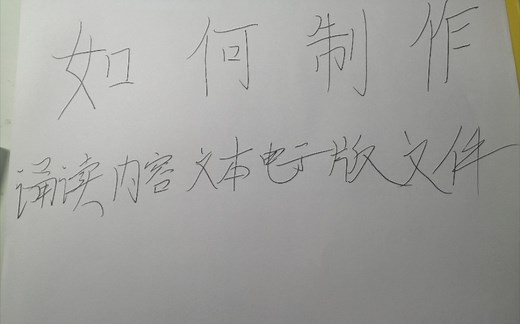 如何制作
诵读内容文本电子版文件